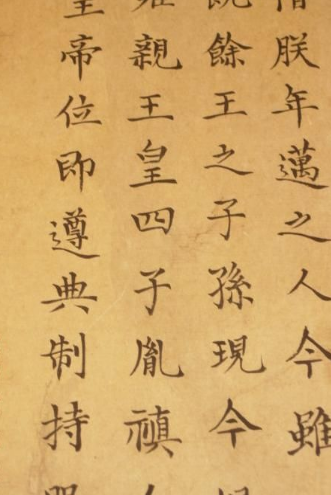 朕年邁之人今雖
餘王之子孫現今
雍親王皇四子胤禛
皇帝位即遵典制持